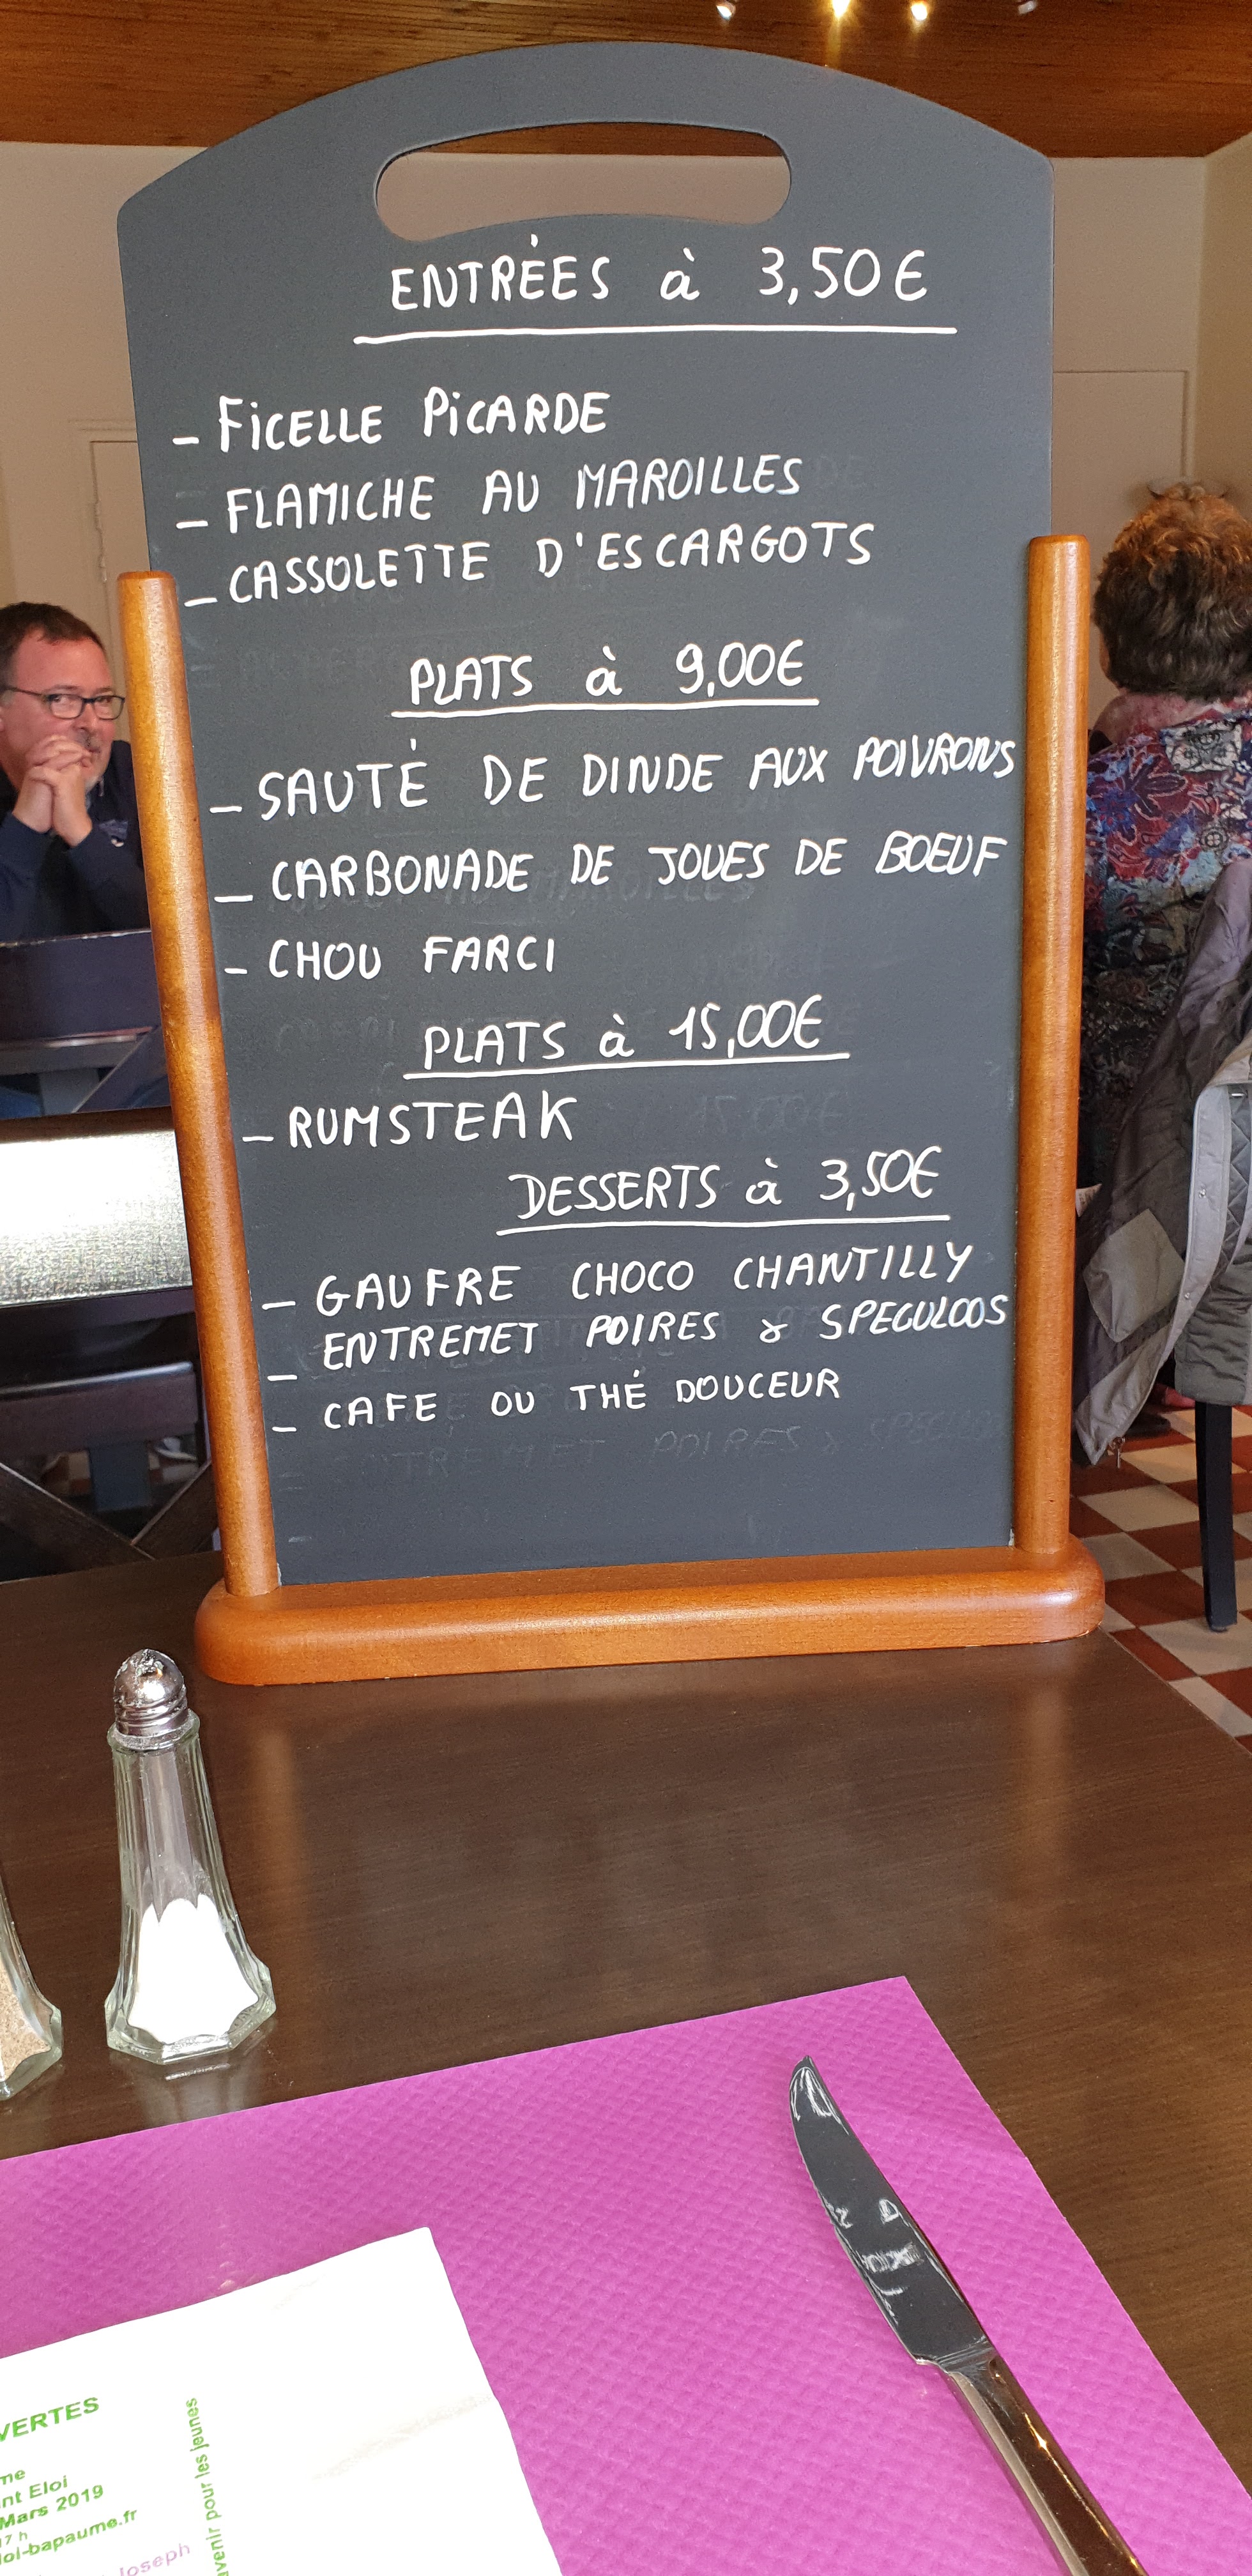 ENTRÉES à 3,50€
- FiCELLE PiCARDE
- FLAMICHE AU MAROILLES
- CASSOLETTE D'ESCARGOTS
PLATS à 9,00€
- SAUTÉ DE DINDE AUX POIVRONS
- CARBONADE DE JOUES DE BOEUF
- CHOU FARCI
PLATS à 15,00€
- RUMSTEAK
DESSERTS à 3,50€
- GAUFRE CHOCO CHANTILLY
- ENTREMET POIRES & SPECULOOS
- CAFE OU THÉ DOUCEUR
VERTES
nt Eloi
Mars 2019
17 h
loi-bapaume.fr
Joseph
venir pour les jeunes